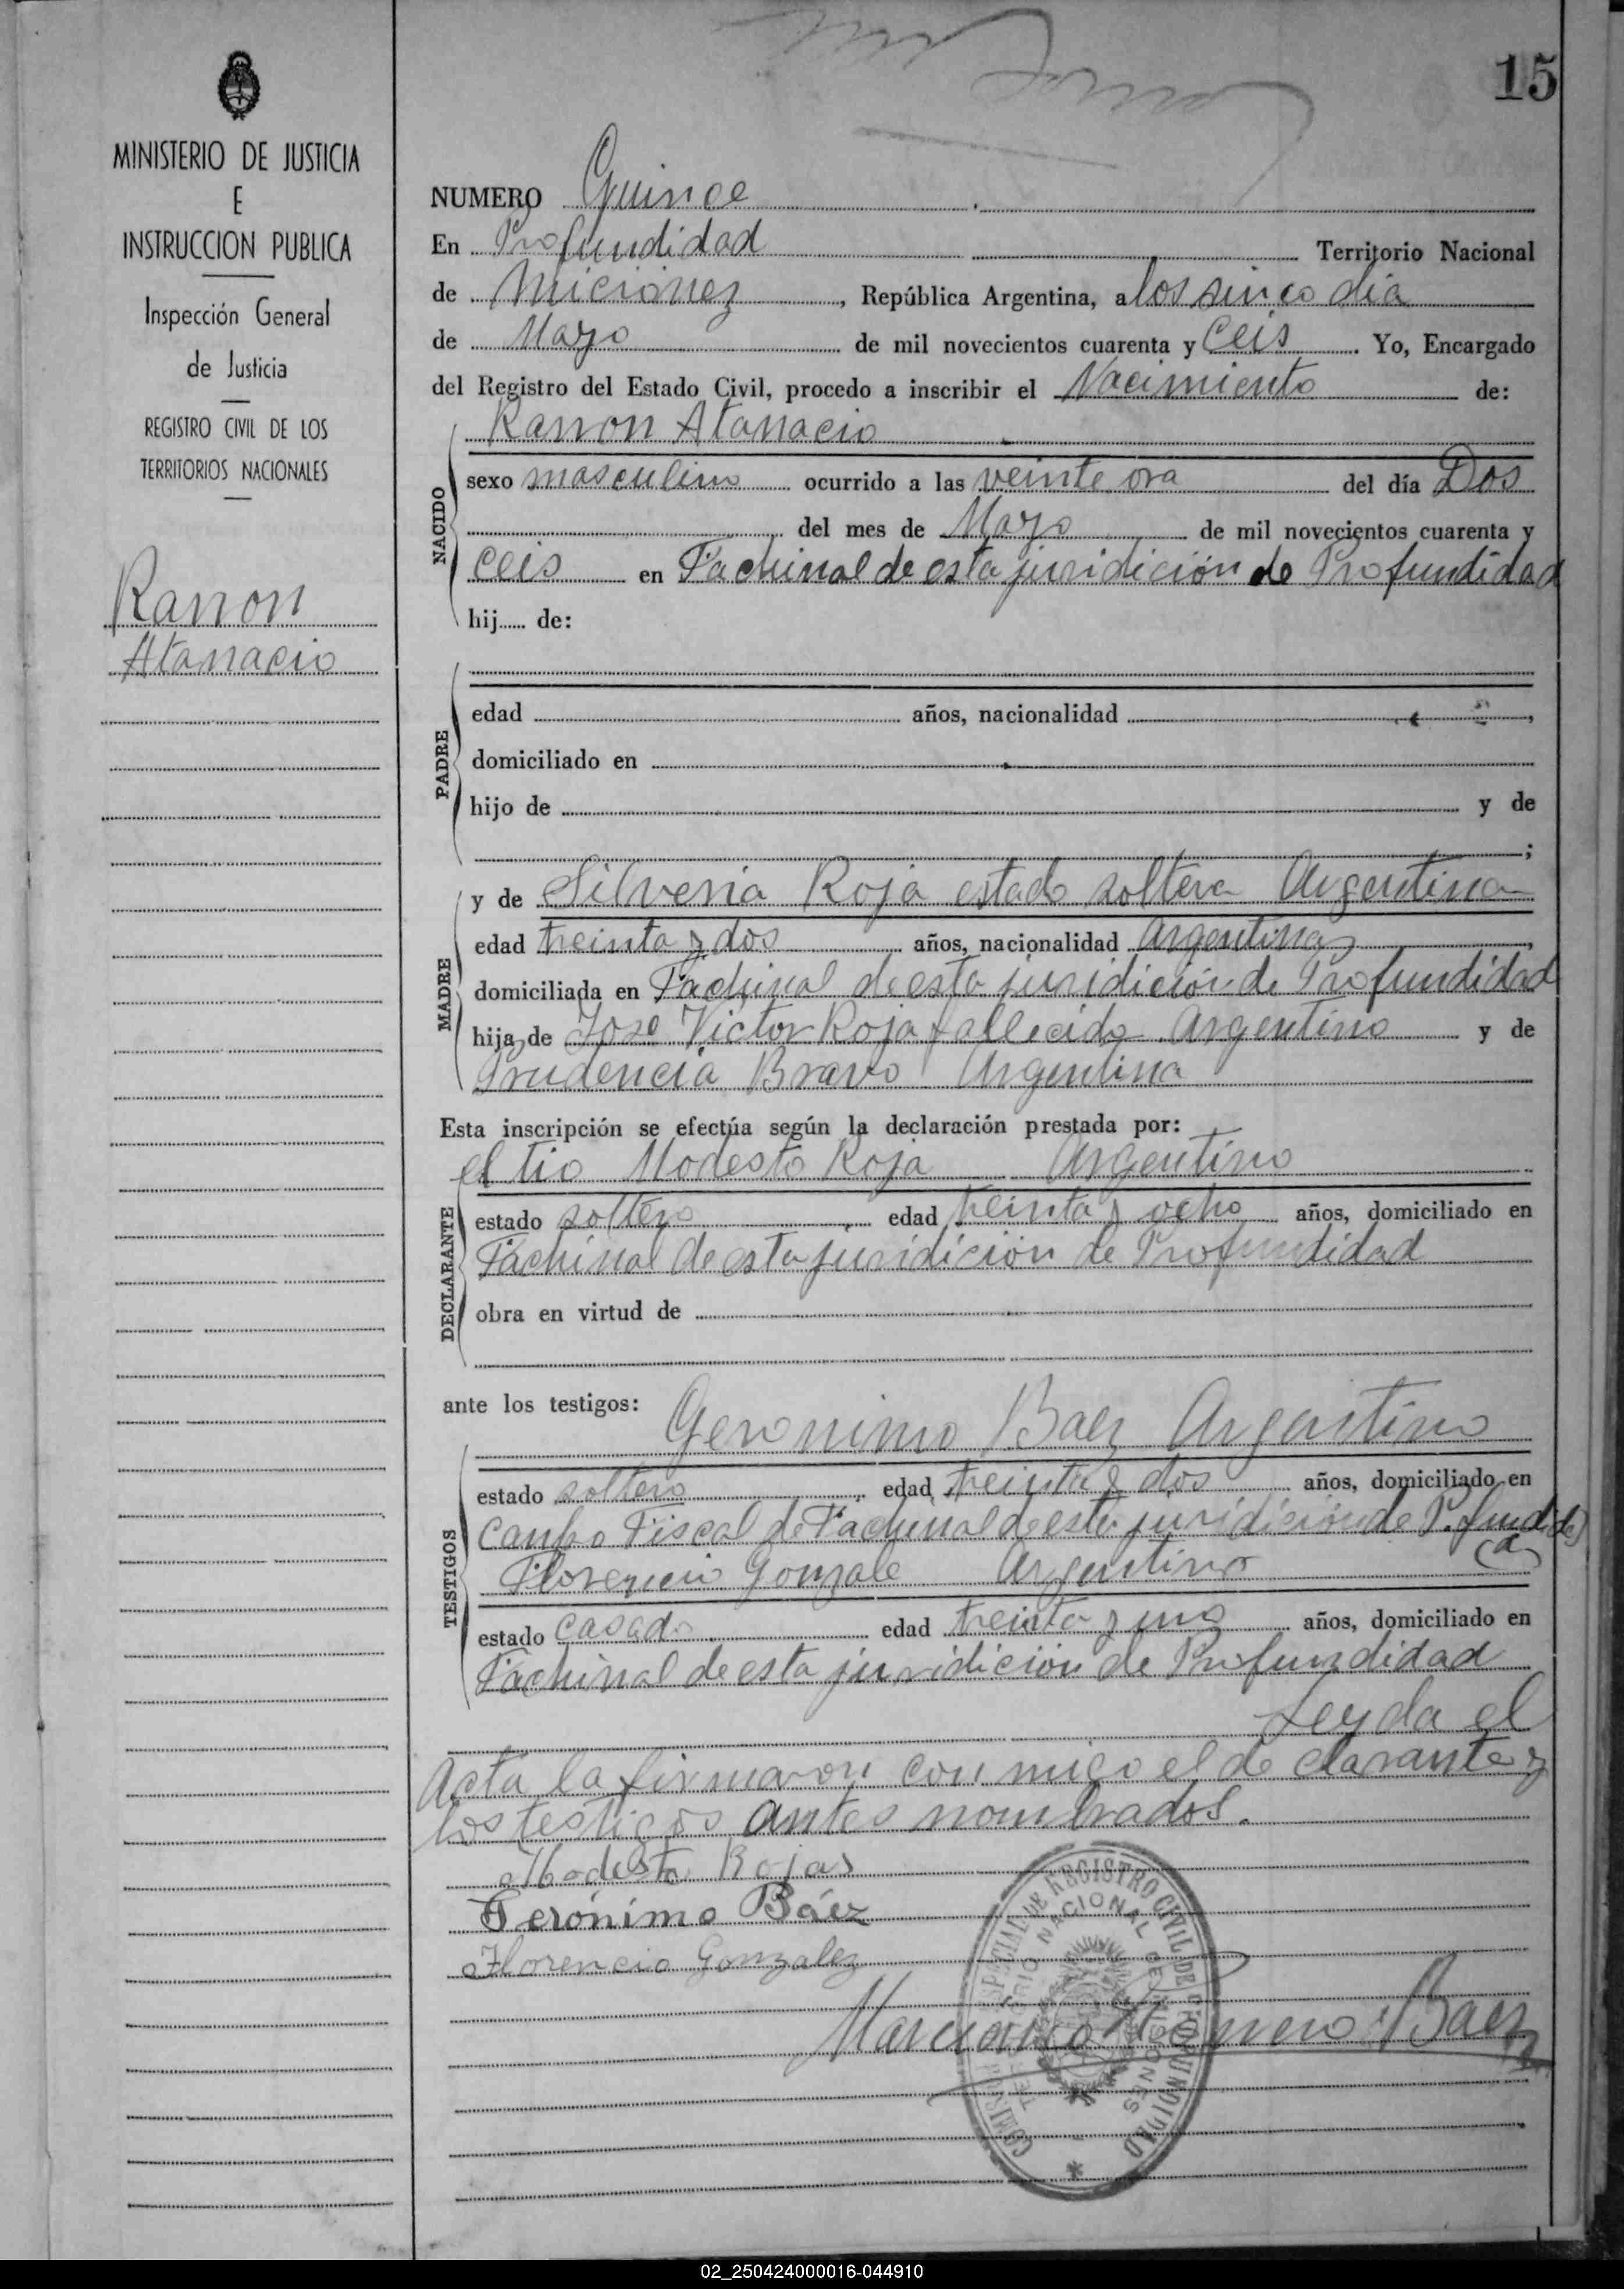 15
MINISTERIO DE JUSTICIA
E
INSTRUCCION PUBLICA
Inspección General
de Justicia
REGISTRO CIVIL DE LOS
TERRITORIOS NACIONALES
Ramon
Atanacio
NUMERO Quince
En Profundidad Territorio Nacional
de Micionez, República Argentina, a los sinco dia
de Mayo de mil novecientos cuarenta y Ceis. Yo, Encargado
del Registro del Estado Civil, procedo a inscribir el Nacimiento de:
Ramon Atanacio
NACIDO
sexo masculino ocurrido a las veinte ora del día Dos
del mes de Mayo de mil novecientos cuarenta y
ceis en Fachinal de esta juridición de Profundidad
hij...... de:
PADRE
edad años, nacionalidad ,
domiciliado en
hijo de y de
;
MADRE
y de Silveria Roja estado soltera Argentina
edad treinta y dos años, nacionalidad Argentina,
domiciliada en Fachinal de esta juridición de Profundidad
hija de Jose Victor Roja fallecido Argentino y de
Prudencia Bravo Argentina
Esta inscripción se efectúa según la declaración prestada por:
el tio Modesto Roja Argentino
DECLARANTE
estado soltero, edad treinta y ocho años, domiciliado en
Fachinal de esta juridición de Profundidad
obra en virtud de
ante los testigos:
Geronimo Baez Argentino
TESTIGOS
estado soltero, edad treinta y dos años, domiciliado en
Canpo Fiscal de Fachinal de esta juridición de Profundid
(ad)
Florencio Gonzale Argentino
estado casado edad treinta y uno años, domiciliado en
Fachinal de esta juridición de Profundidad
Leyda el
Acta la firmaron con migo el de clarante y
los testigos antes nombrados.
Modesto Rojas
Gerónimo Báez
Florencio Gonzalez
Marciano Baez
REGISTRO CIVIL DE PROFUNDIDAD
NACIONAL DE MISIONES
02_250424000016-044910